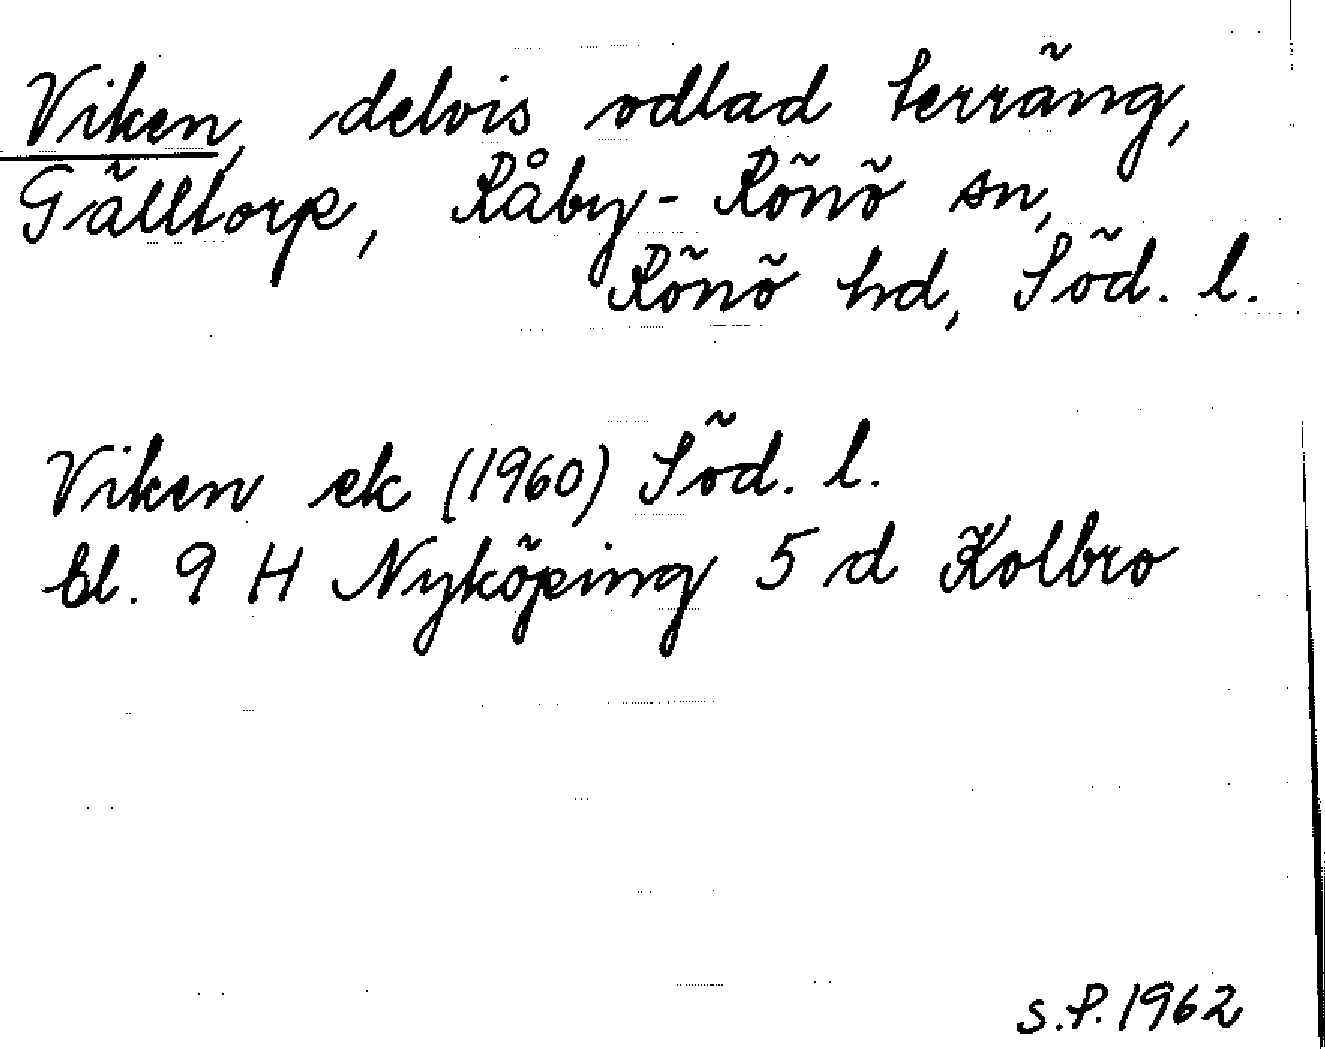 Viken, delvis odlad terräng,
Gälltorp, Råby-Rönö sn,
Rönö hd, Söd. l.
Viken ek (1960) Söd. l.
bl. 9 H Nyköping 5 d Kolbro
S.P. 1962